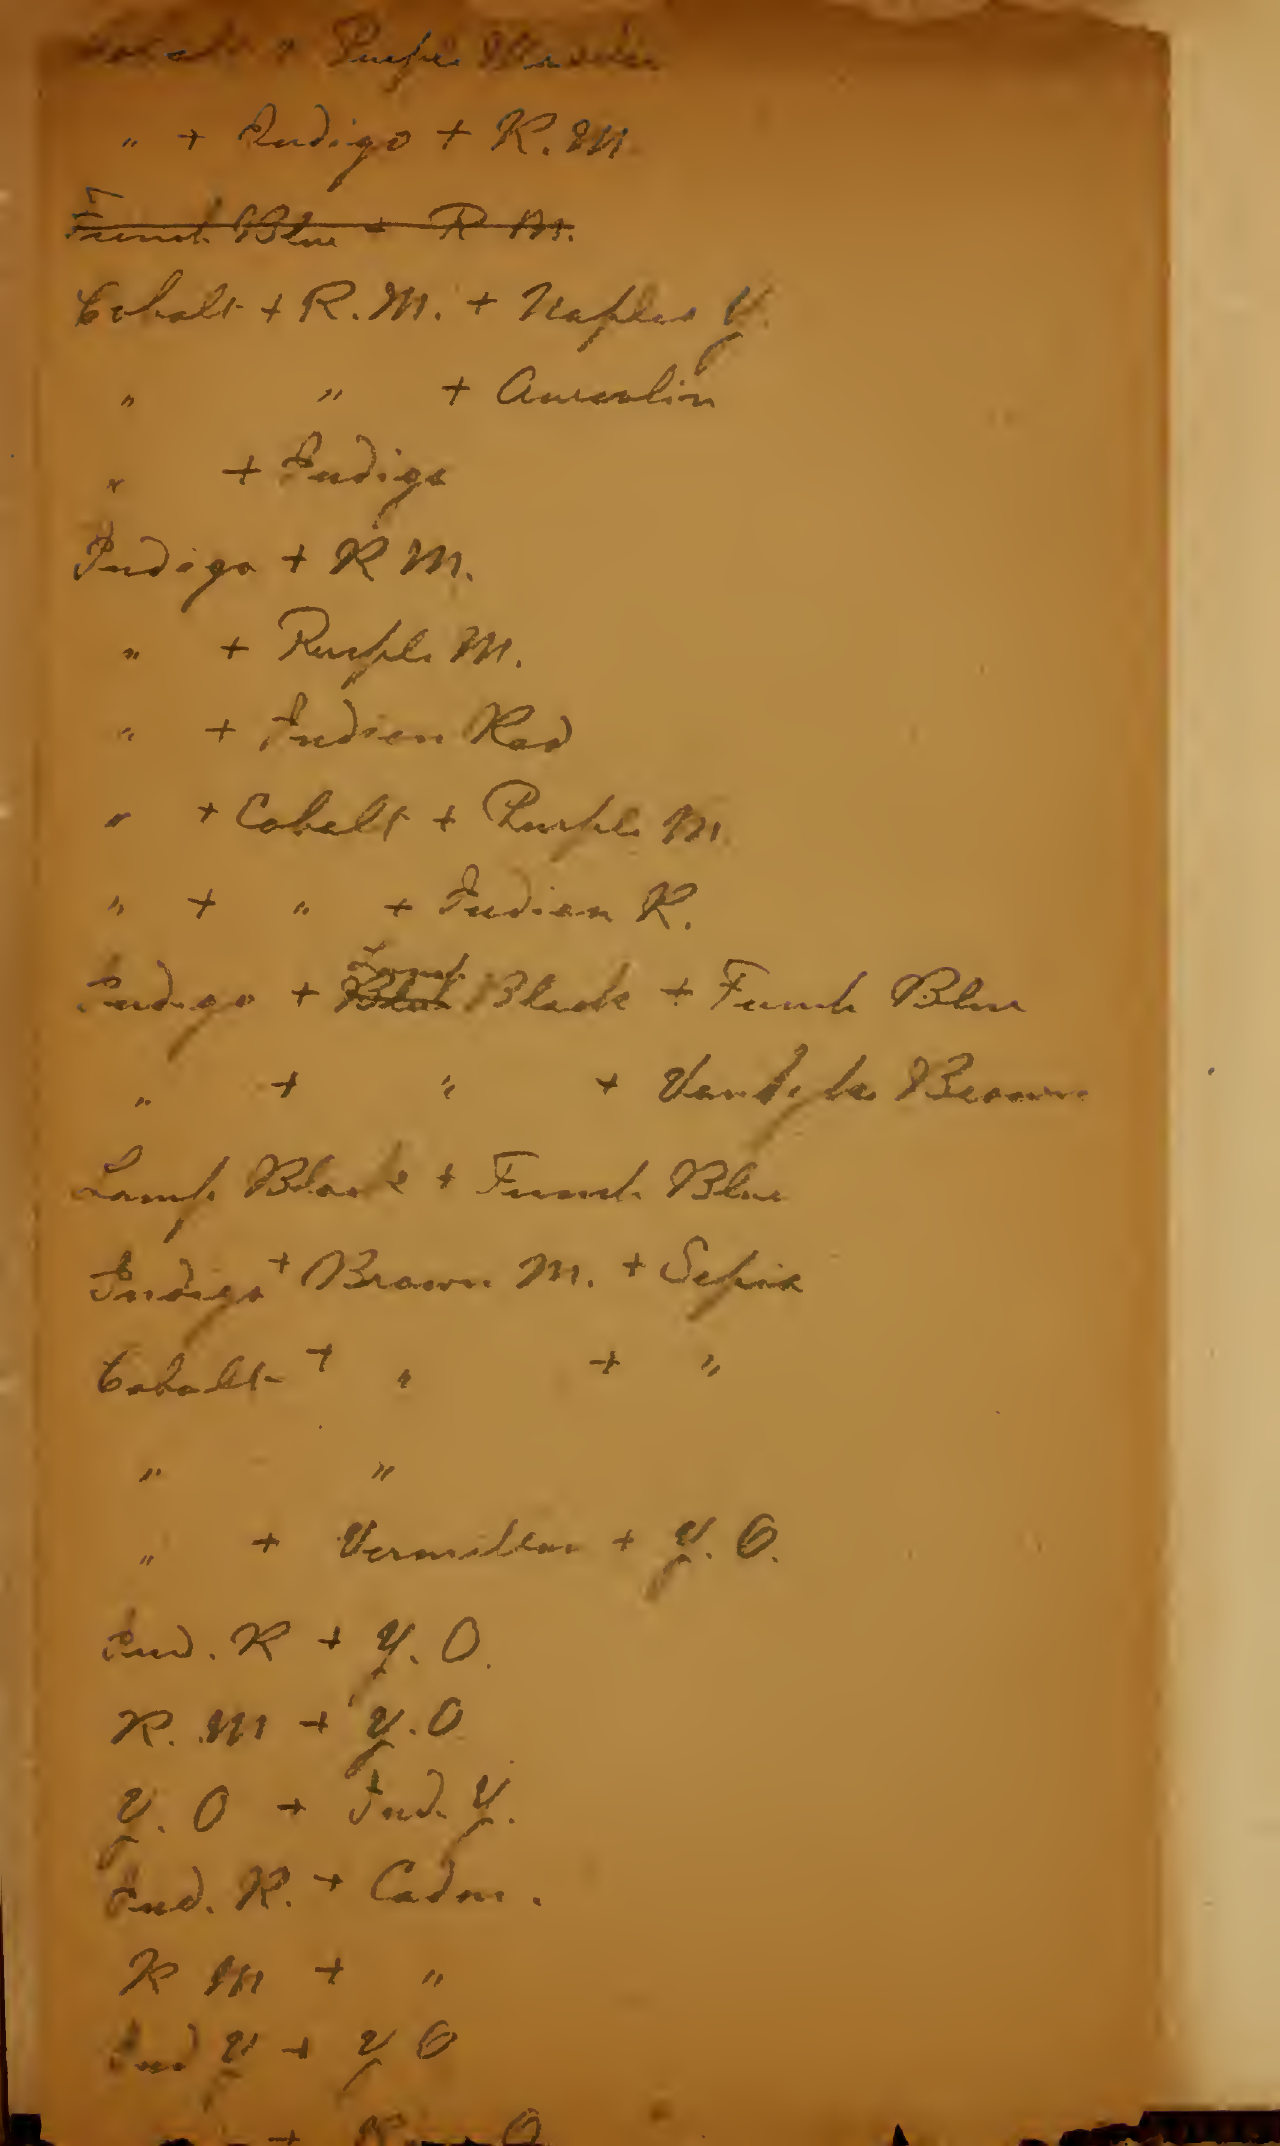 Cobalt + Purple Madder
" + Indigo + R. M.
French Blue + R M.
Cobalt + R. M. + Naples Y.
" " + Aureolin
" + Indigo
Indigo + R M.
" + Purple M.
" + Indian Red
" + Cobalt + Purple M.
" + " + Indian R.
Indigo + Lamp Black + French Blue
" + " + Vandyke Brown
Lamp Black + French Blue
Indigo + Brown M. + Sepia
Cobalt + " + "
" "
" + Vermilion + Y. O.
Ind. R + Y. O.
R. M + Y. O
Y. O + Ind. Y.
Ind. R. + Cadm.
R M + "
Ind Y + Y O
+